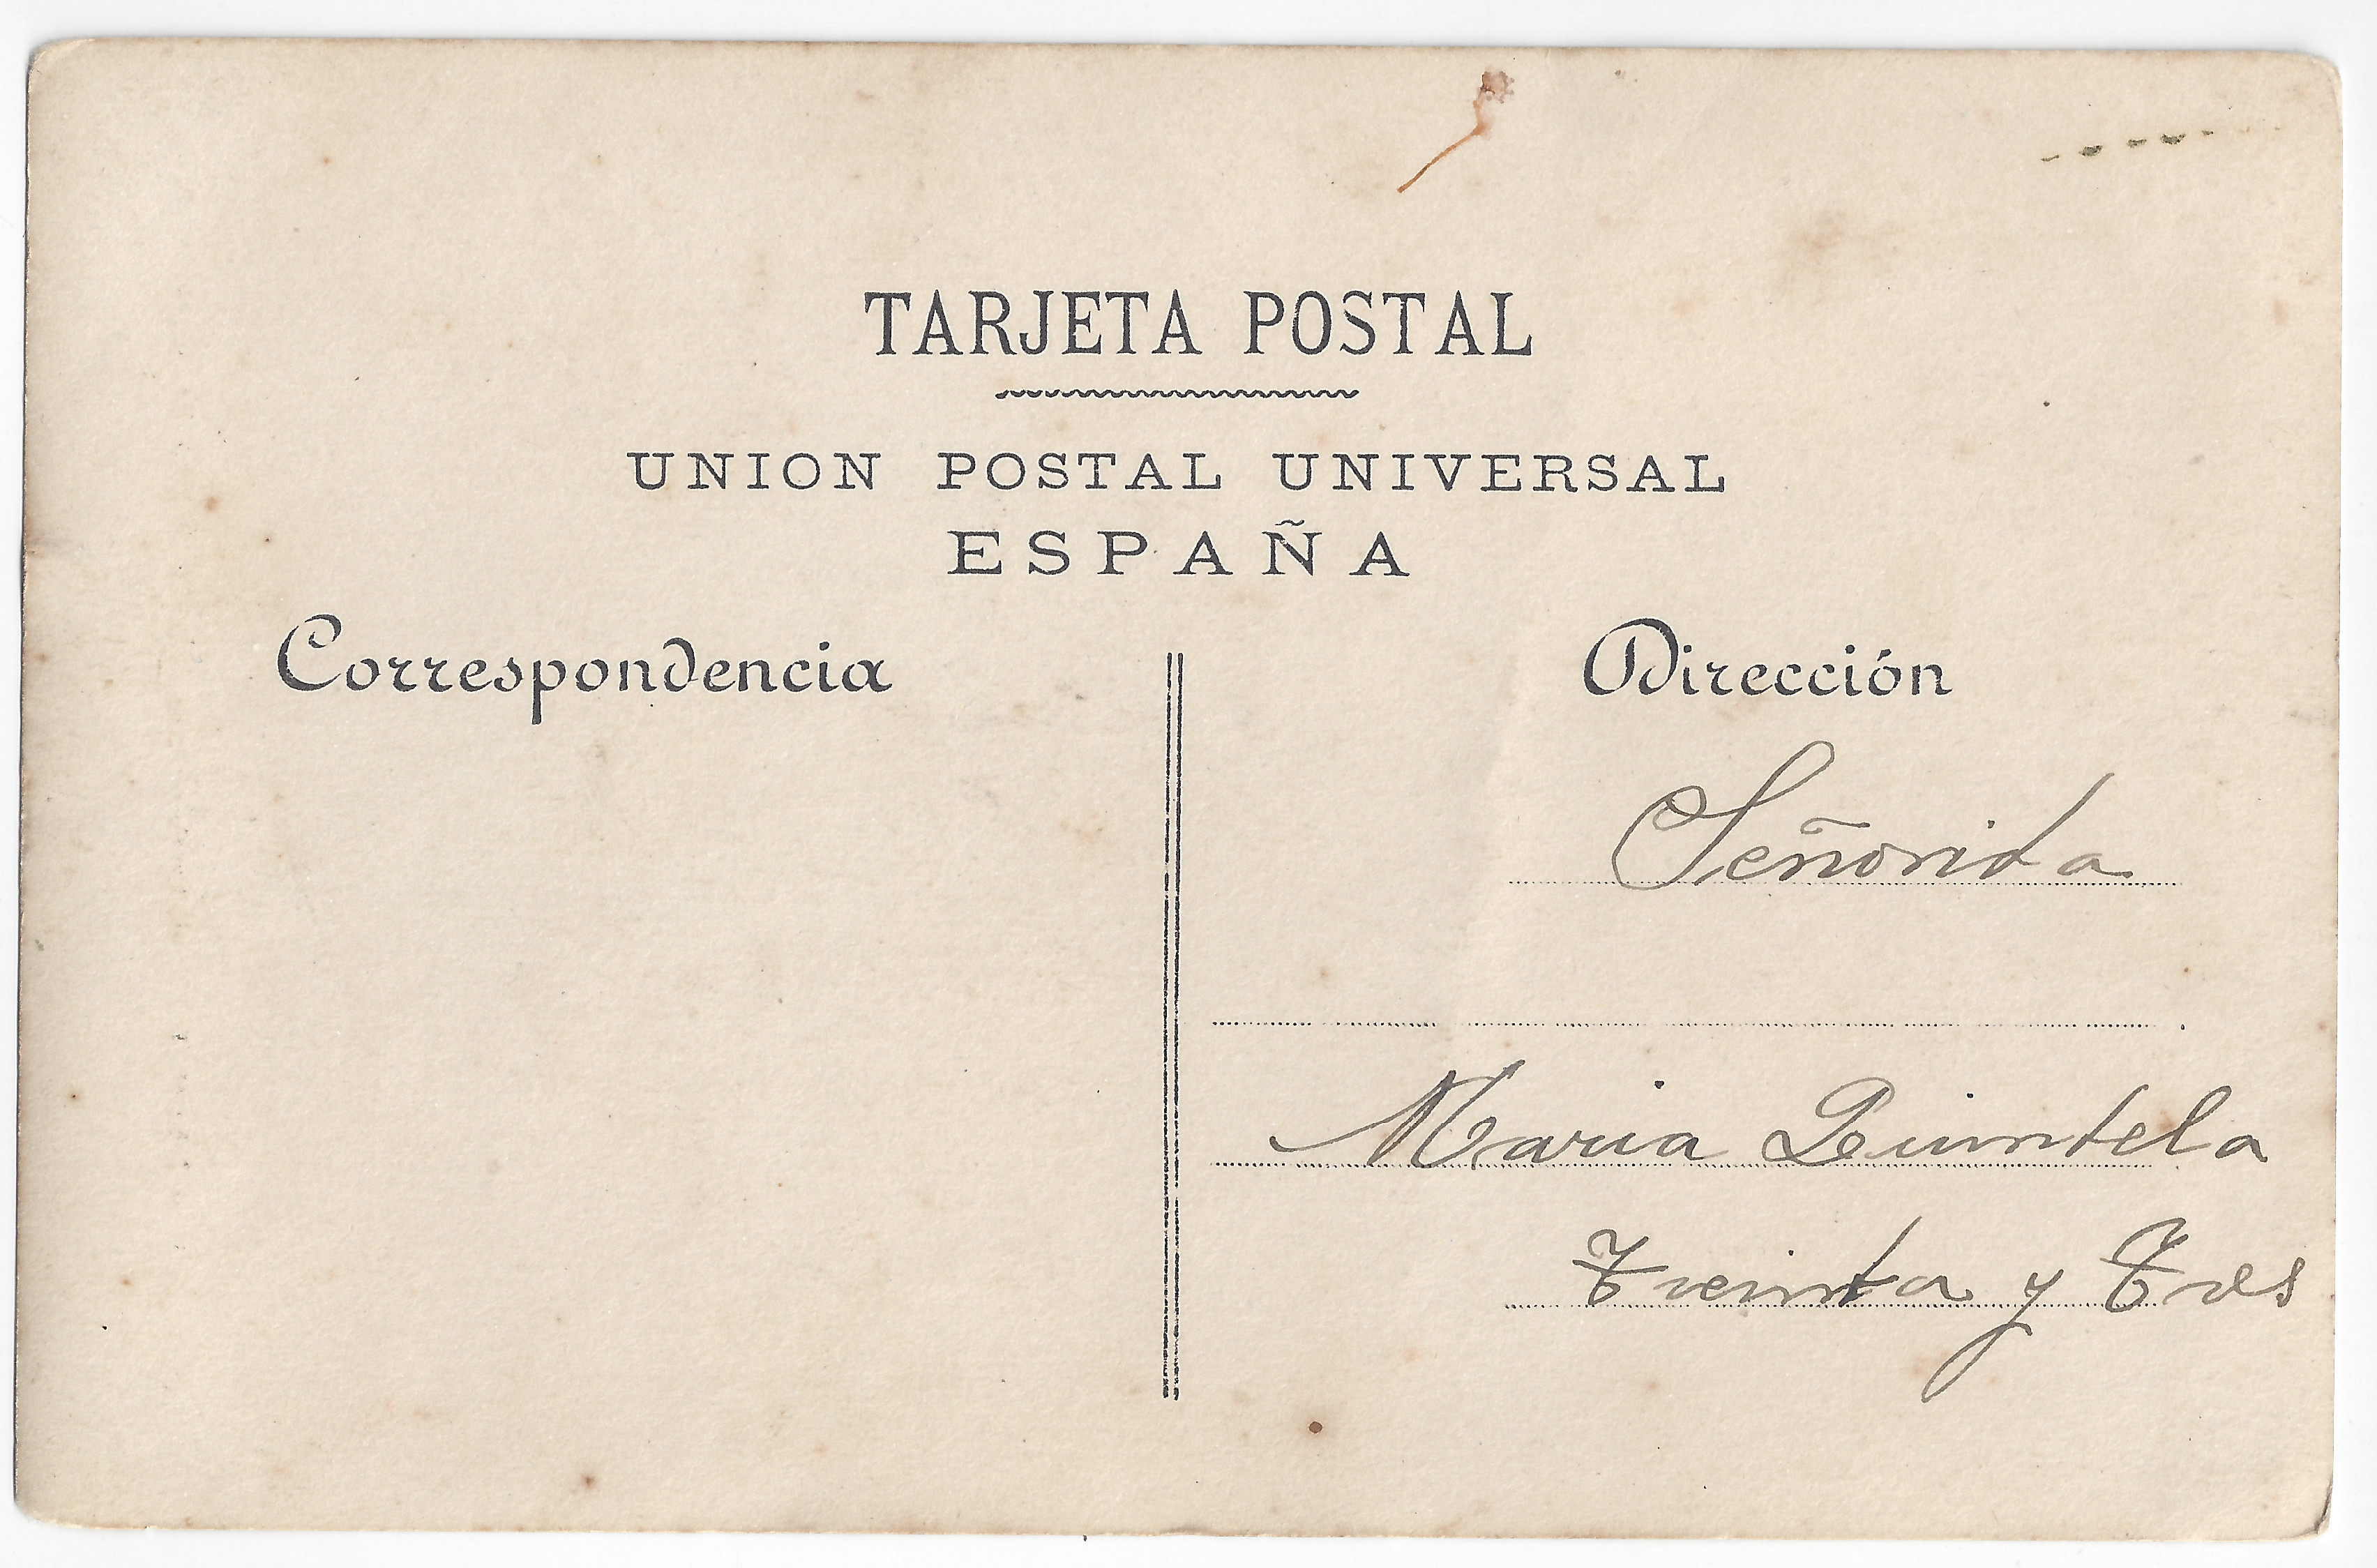 TARJETA POSTAL
UNION POSTAL UNIVERSAL
ESPAÑA
Correspondencia
Dirección
Señorita
Maria Quintela
Treinta y Tres